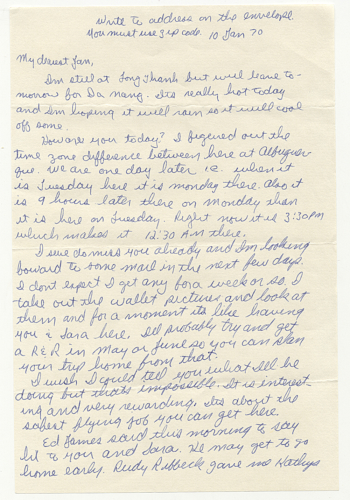 Write to address on the envelope.
You must use zip code. 10 Jan 70
My dearest Jan,
Im still at Long Thanh but will leave to-
morrow for Da Nang. Its really hot today
and Im hoping it will rain so it will cool
off some.
How are you today? I figured out the
time zone difference between here at Albuquer-
que. We are one day later ie. when it
is Tuesday here it is monday there. Also it
is 9 hours later there on monday than
it is here on Tuesday. Right now it is 3:30 PM
which makes it 12:30 AM there.
I sure do miss you already and Im looking
foward to some mail in the next few days.
I dont expect I get any for a week or so. I
take out the wallet pictures and look at
them and for a moment its like having
you & Sara here. Ill probably try and get
a R&R in May or June so you can plan
your trip home from that.
I wish I could tell you what Ill be
doing but thats impossible. It is interest-
ing and very rewarding. Its about the
safest flying job you can get here.
Ed James said this morning to say
hi to you and Sara. He may get to go
home early. Rudy Ribbeck gave me Kathys